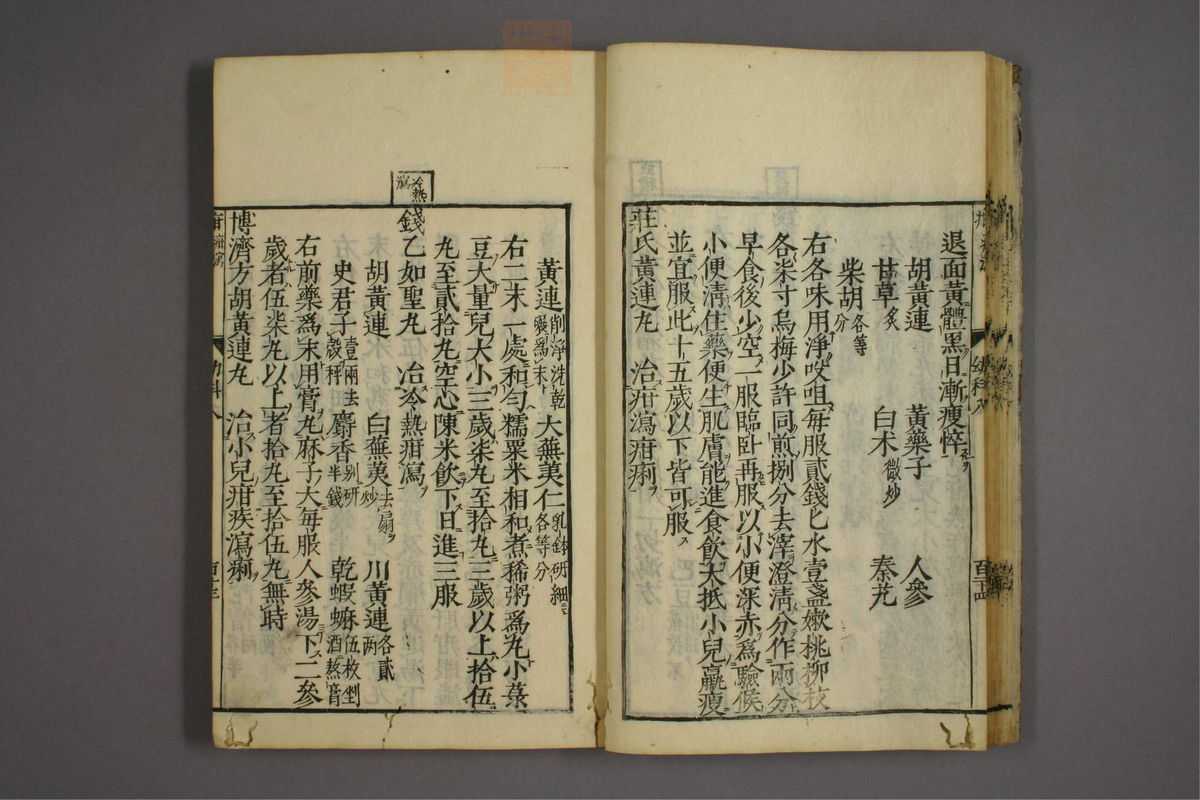 退面黃體黑日漸瘦悴
胡黃連 黃藥子 人參
甘草炙 白朮微炒 秦艽
柴胡各等分
右各味用淨㕮咀每服貳錢匕水壹盞嫰桃柳枝
各柒寸烏梅少許同煎捌分去滓澄清分作兩分
早食後少空一服臨臥再服以小便深赤爲驗候
小便清住藥便生肌膚能進食飲大抵小兒羸瘦
並宜服此十五歲以下皆可服
莊氏黃連丸 治疳瀉疳痢
幼科八
黃連削淨洗乾碾爲末 大蕪荑仁乳鉢研細各等分
右二末一處和勻糯粟米相和煮稀粥爲丸小菉
豆大量兒大小三歲柒丸至拾丸三歲以上拾伍
丸至貳拾丸空心陳米飲下日進三服
冷熱瀉
錢乙如聖丸 治冷熱疳瀉
胡黃連 白蕪荑去扇炒 川黃連各貳兩
史君子壹兩去殼秤 麝香別研半錢 乾蝦蟆伍枚剉酒熬膏
右前藥爲末用膏丸麻子大每服人參湯下二參
歲者伍柒丸以上者拾丸至拾伍丸無時
博濟方胡黃連丸 治小兒疳疾瀉痢
幼科八